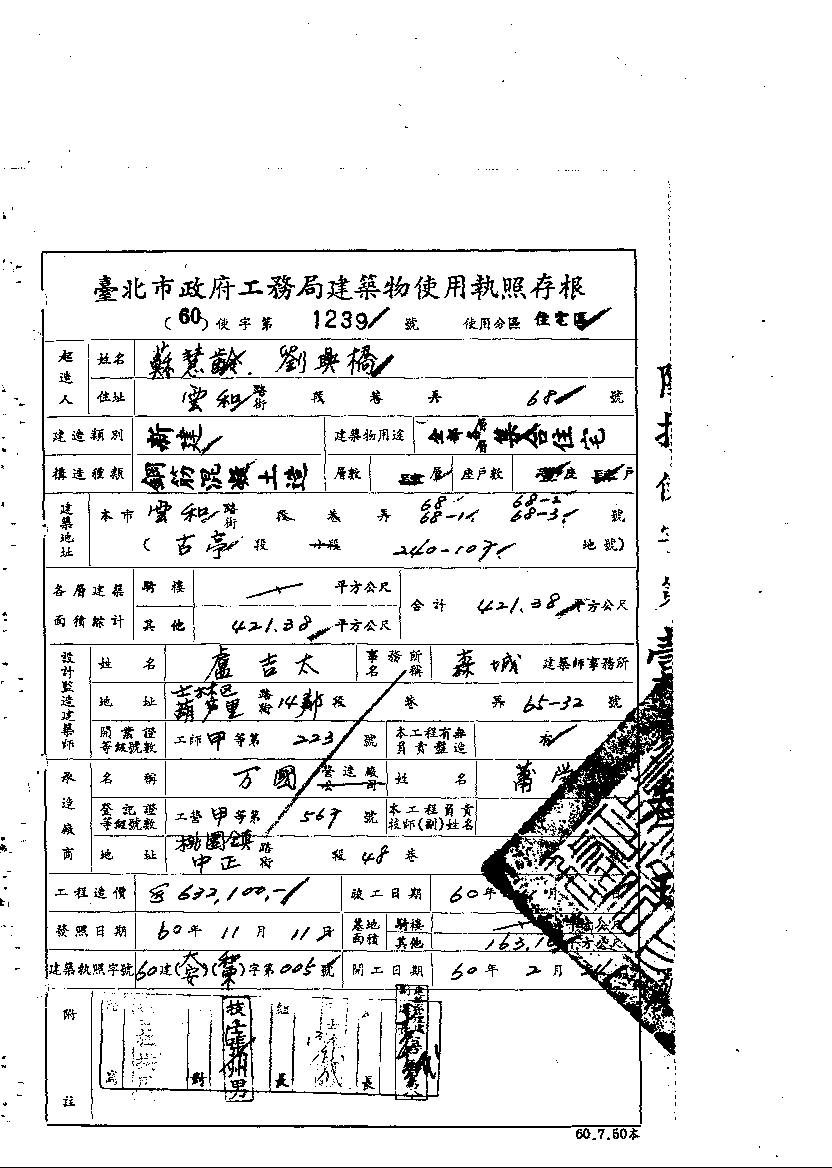 臺北市政府工務局建築物使用執照存根
(60)使字第 1239 號 使用分區 住宅區
起造人 姓名 蘇慧齡. 劉興橋
住址 雲和 路街 段 巷 弄 68 號
建造類別 新建 建築物用途 全部各層 集合住宅
構造種類 鋼筋混凝土造 層數 肆層 座戶數 壹座 肆戶
建築地址 本市 雲和 路街 段 巷 弄 68. 68-1. 68-2. 68-3. 號
(古亭 段 小段 240-107. 地號)
各層建築面積綜計 騎樓 平方公尺 合計 421.38 平方公尺
其他 421.38 平方公尺
設計監造建築師 姓名 盧吉太 事務所名稱 森城 建築師事務所
地址 士林區葫芦里 路街 14鄰 段 巷 弄 65-32 號
開業證等級號數 工師 甲 等第 223 號 本工程有無負責監造 有
承造廠商 名稱 万國 營造廠公司 姓名 蕭
登記證等級號數 工營 甲 等第 567 號 本工程負責技師(副)姓名
地址 桃園鎮中正 路街 段 48 巷
工程造價 632,100.- 竣工日期 60年 月
發照日期 60年 11月 11日 基地面積 騎樓 平方公尺
其他 163.1 平方公尺
建築執照字號 60建(大安)( )字第005號 開工日期 60年 2月
附註
對 技士 男 組長 長
60.7.50本